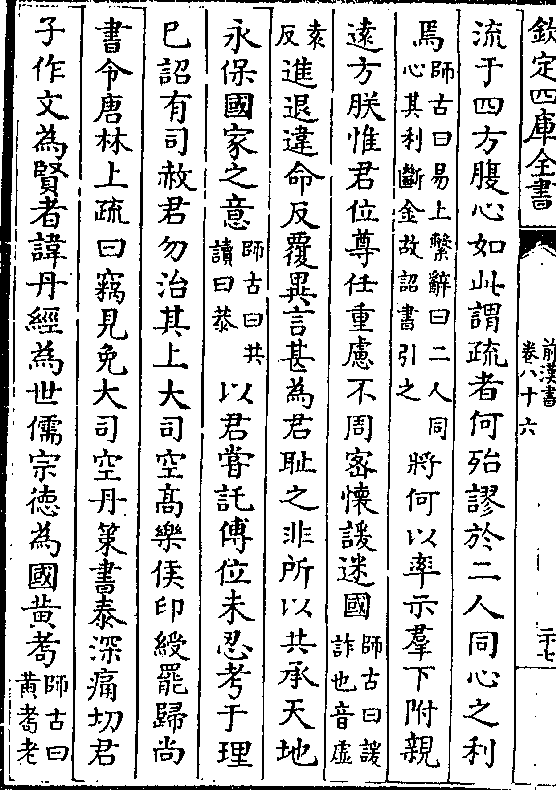 欽定四庫全書
前漢書
卷八十六
二十七
流于四方腹心如此謂疏者何殆謬於二人同心之利
焉師古曰易上繫辭曰二人同心其利斷金故詔書引之將何以率示羣下附親
逺方朕惟君位尊任重慮不周宻懷諼迷國師古曰諼詐也音虚
袁反進退違命反覆異言甚為君恥之非所以共承天地
永保國家之意師古曰共讀曰恭以君嘗託傅位未忍考于理
已詔有司赦君勿治其上大司空髙樂侯印綬罷歸尚
書令唐林上疏曰竊見免大司空丹策書泰深痛切君
子作文為賢者諱丹經為世儒宗徳為國黄耇師古曰黄耇老